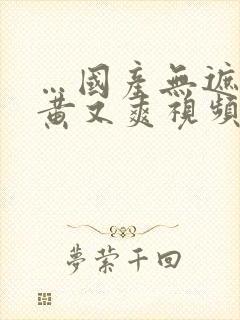 …國產無遮
黃又爽視頻
夢縈千回